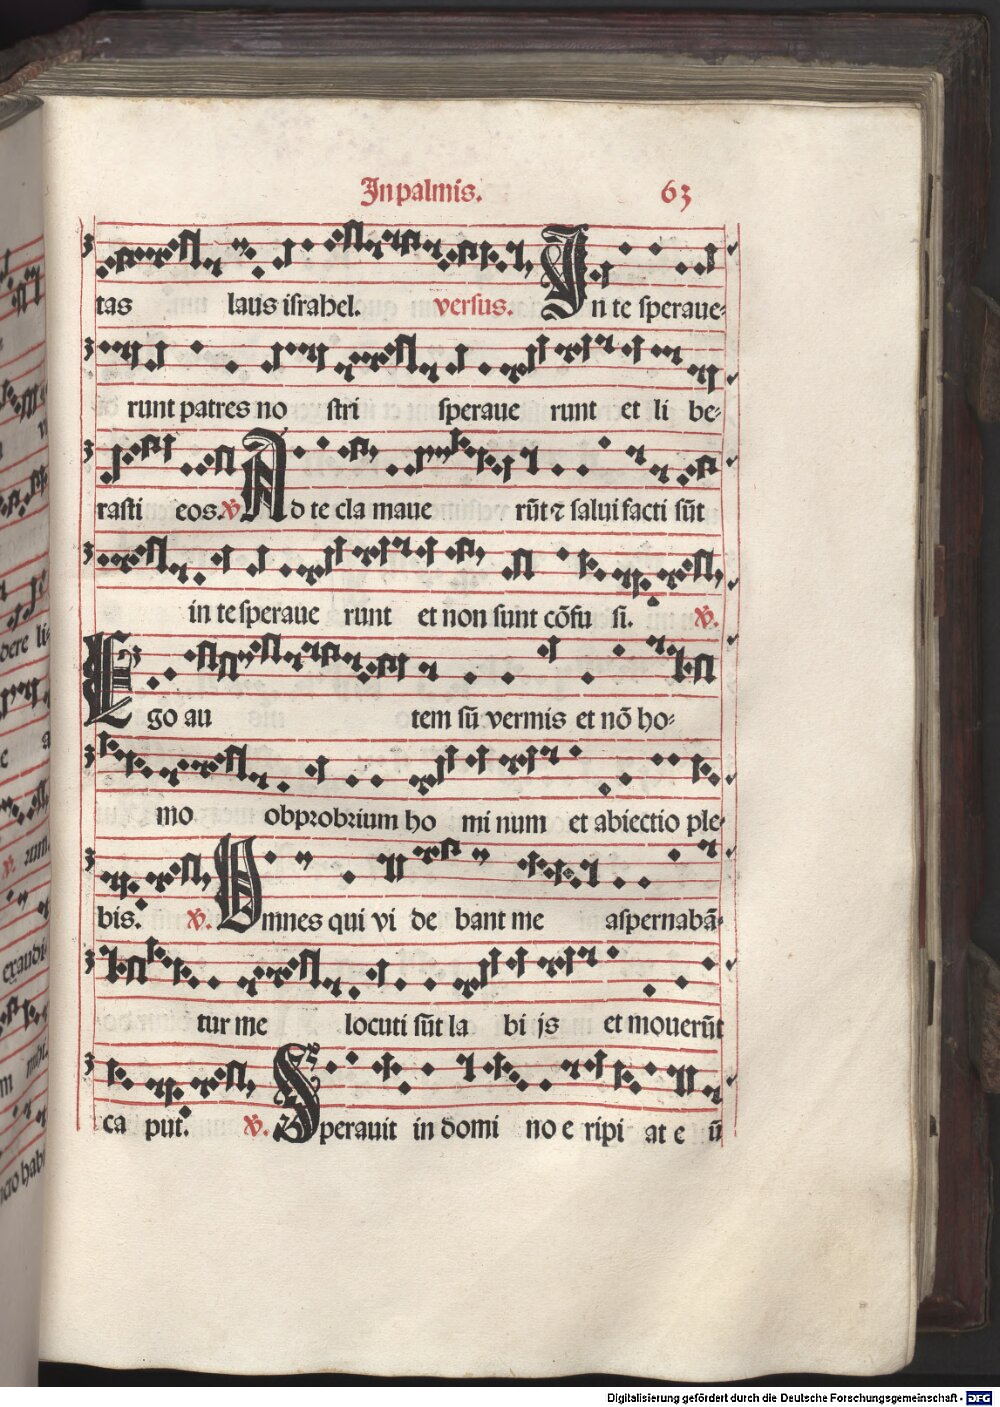 In palmis. 63
tas laus israhel. versus. In te speraue-
runt patres no stri speraue runt et li be-
rasti eos. V. Ad te cla maue rūt ⁊ salui facti sūt
in te speraue runt et non sunt cōfu si. V.
Ego au tem sū vermis et nō ho-
mo obprobrium ho mi num et abiectio ple-
bis. V. Omnes qui vi de bant me aspernabā-
tur me locuti sūt la bi js et mouerūt
ca put. V. Sperauit in domi no e ripi at e ū
dere li-
e a
V. uni.
exaudi
m mihi.
Digitalisierung gefördert durch die Deutsche Forschungsgemeinschaft - DFG